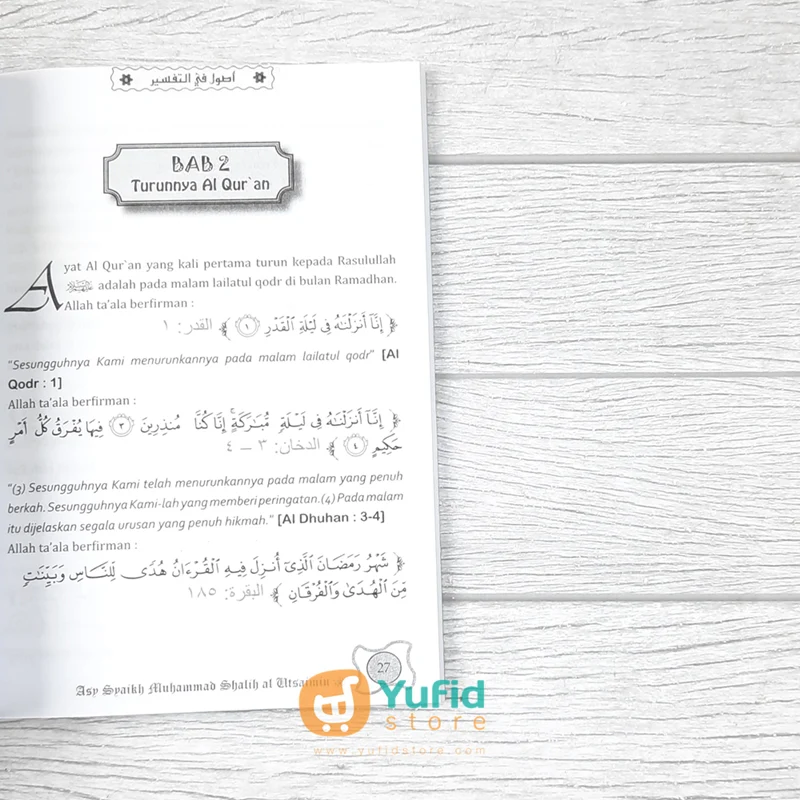 أصول في التفسير
BAB 2
Turunnya Al Qur`an
Ayat Al Qur`an yang kali pertama turun kepada Rasulullah
ﷺ adalah pada malam lailatul qodr di bulan Ramadhan.
Allah ta'ala berfirman :
﴿ إِنَّآ أَنزَلْنَٰهُ فِى لَيْلَةِ ٱلْقَدْرِ ١ ﴾ القدر: ١
"Sesungguhnya Kami menurunkannya pada malam lailatul qodr" [Al
Qodr : 1]
Allah ta'ala berfirman :
﴿ إِنَّآ أَنزَلْنَٰهُ فِى لَيْلَةٍ مُّبَٰرَكَةٍ ۚ إِنَّا كُنَّا مُنذِرِينَ ٣ فِيهَا يُفْرَقُ كُلُّ أَمْرٍ
حَكِيمٍ ٤ ﴾ الدخان: ٣ – ٤
"(3) Sesungguhnya Kami telah menurunkannya pada malam yang penuh
berkah. Sesungguhnya Kami-lah yang memberi peringatan.(4) Pada malam
itu dijelaskan segala urusan yang penuh hikmah." [Al Dhuhan : 3-4]
Allah ta'ala berfirman :
﴿ شَهْرُ رَمَضَانَ ٱلَّذِىٓ أُنزِلَ فِيهِ ٱلْقُرْءَانُ هُدًى لِّلنَّاسِ وَبَيِّنَٰتٍ
مِّنَ ٱلْهُدَىٰ وَٱلْفُرْقَانِ ﴾ البقرة: ١٨٥
Asy Syaikh Muhammad Shalih al Utsaimin
27
Yufid
store
www.yufidstore.com